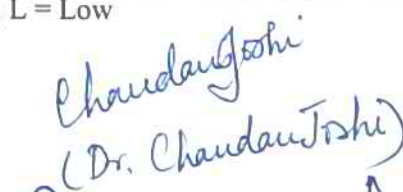 L = Low
Chandan Joshi
(Dr. Chandan Joshi)